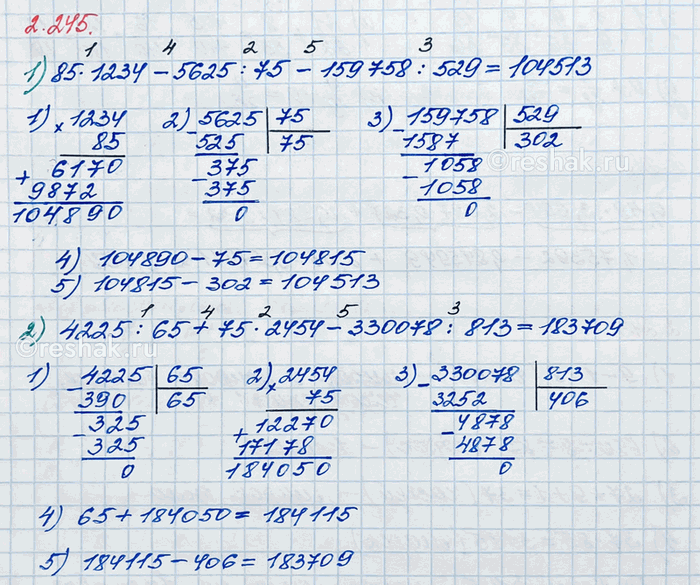 2.245.
1 4 2 5 3
1) 85·1234 – 5625 : 75 – 159758 : 529 = 104513
1) × 1234 2) – 5625 | 75 3) – 159758 | 529
85 525 | 75 1587 | 302
+ 6170 – 375 – 1058
9872 375 1058
104890 0 0
reshak.ru
4) 104890 – 75 = 104815
5) 104815 – 302 = 104513
1 4 2 5 3
2) 4225 : 65 + 75 · 2454 – 330078 : 813 = 183709
reshak.ru
1) – 4225 | 65 2) × 2454 3) – 330078 | 813
390 | 65 75 3252 | 406
– 325 + 12270 – 4878
325 17178 4878
0 184050 0
4) 65 + 184050 = 184115
5) 184115 – 406 = 183709